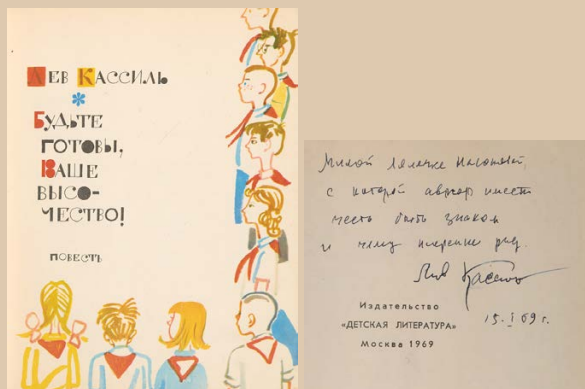 Лев Кассиль
*
Будьте
готовы,
Ваше
высо-
чество!
повесть
Милой Лялечке
с которой автор имеет
честь быть знаком
и чему искренне рад.
Лев Кассиль
15.I 69 г.
Издательство
«ДЕТСКАЯ ЛИТЕРАТУРА»
Москва 1969